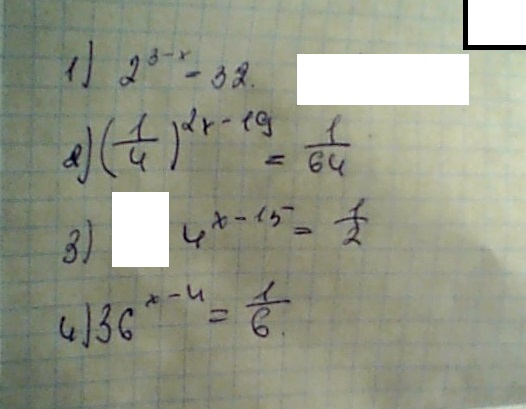 1) 2^{3-x} = 32.
2) (1/4)^{2x-19} = 1/64
3) 4^{x-15} = 1/2
4) 36^{x-4} = 1/6.